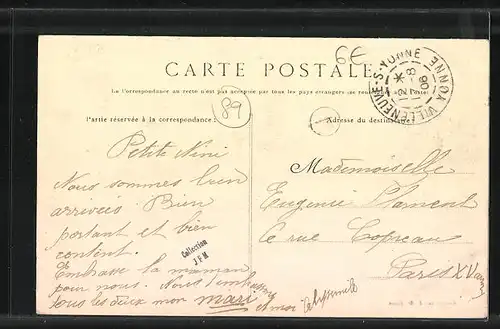 6E
CARTE POSTALE
La correspondance au recto n'est pas acceptée par tous les pays étrangers (se renseigner à la Poste)
89
VILLENEUVE-S-YONNE
8
06
YONNE
Partie réservée à la correspondance.
Adresse du destinataire
Petite Nini
Nous sommes bien
arrivées. Bien
portant et bien
content.
Embrasse ta maman
pour nous. Nous t'embrassons
tous les deux mon mari et moi
Collection
J F M
Mademoiselle
Eugenie
6 rue
Paris XV